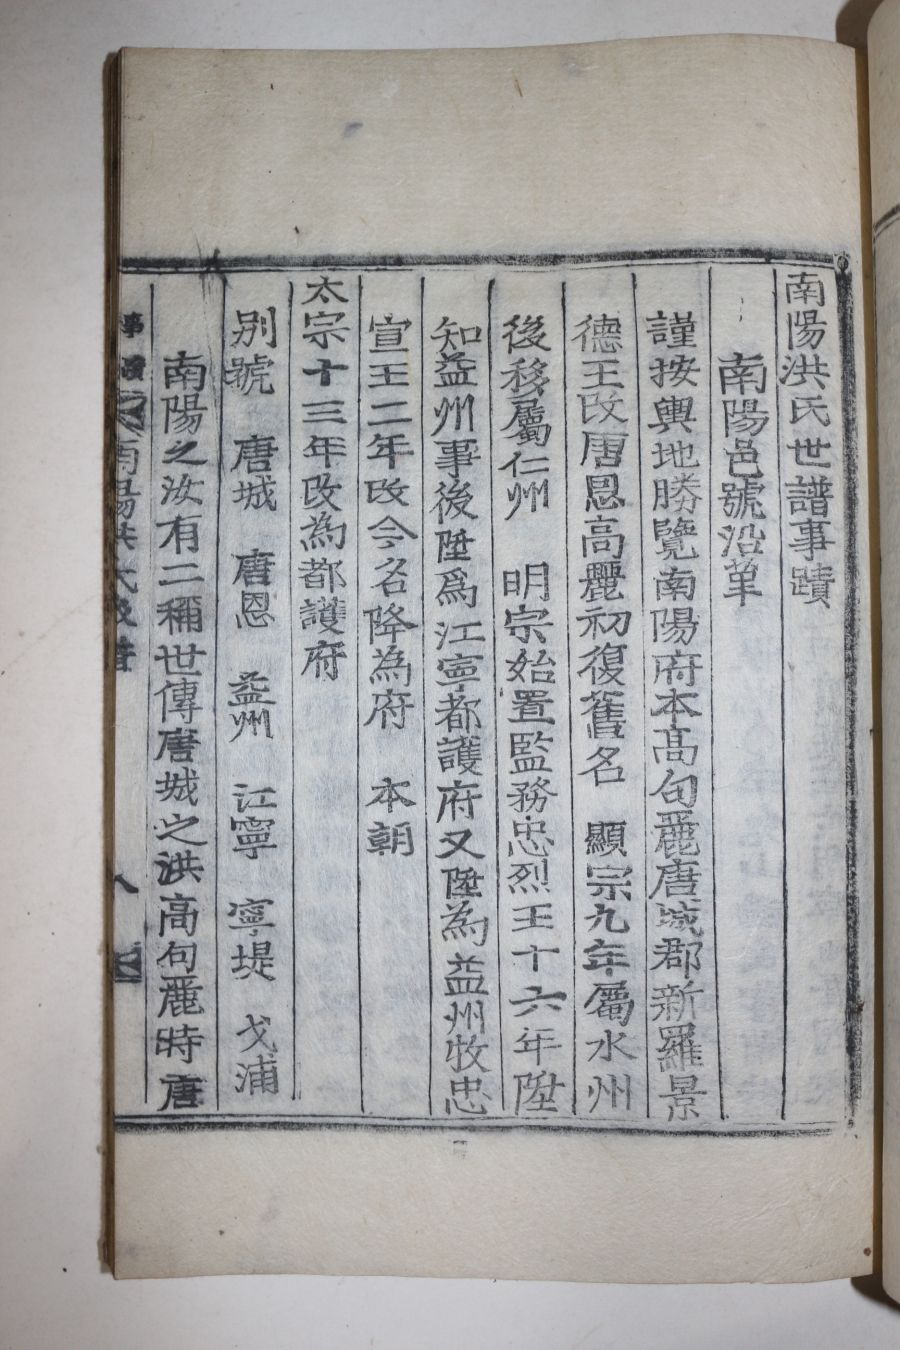 南陽洪氏世譜事蹟
南陽邑號沿革
謹按輿地勝覽南陽府本高句麗唐城郡新羅景
德王改唐恩高麗初復舊名 顯宗九年屬水州
後移屬仁州 明宗始置監務忠烈王十六年陞
知益州事後陞爲江寧都護府又陞為益州牧忠
宣王二年改今名降為府 本朝
太宗十三年改為都護府
別號 唐城 唐恩 益州 江寧 寧堤 戈浦
南陽之汝有二稱世傳唐城之洪高句麗時唐
南陽洪氏世譜
八